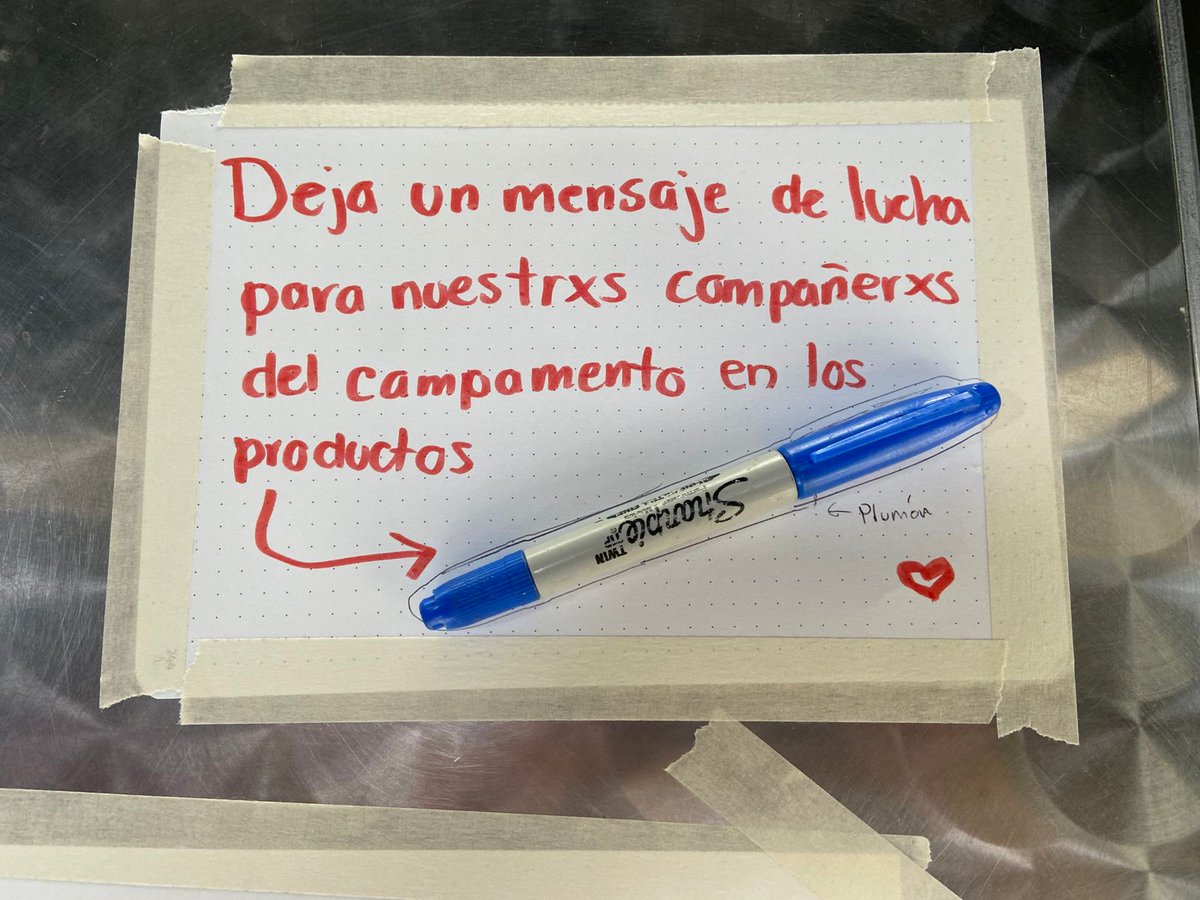 Deja un mensaje de lucha
para nuestrxs compañerxs
del campamento en los
productos
Sharpie
TWIN
← Plumón